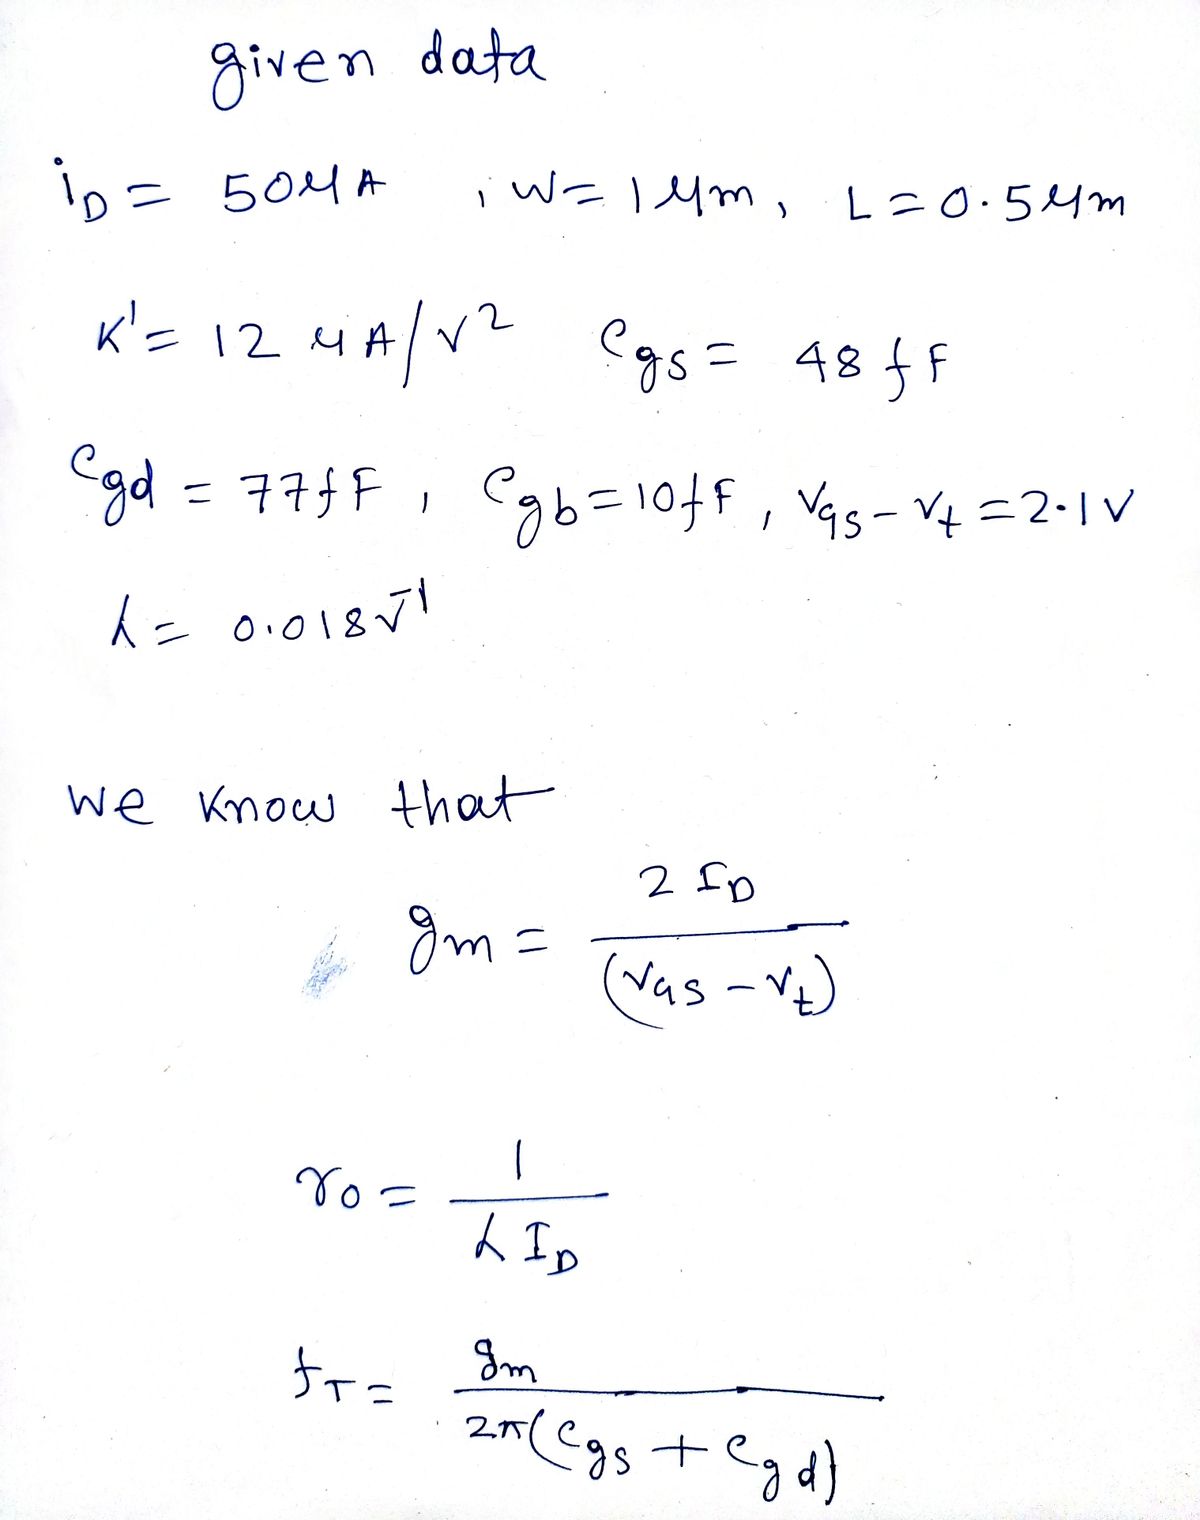 given data
i_D = 50μA , W = 1μm, L = 0.5μm
K' = 12 μA/V² Cgs = 48fF
Cgd = 77fF, Cgb = 10fF, VGS - Vt = 2.1V
λ = 0.018V⁻¹
we know that
gm = 2 I_D / (VGS - Vt)
ro = 1 / λ I_D
f_T = gm / 2π(Cgs + Cgd)